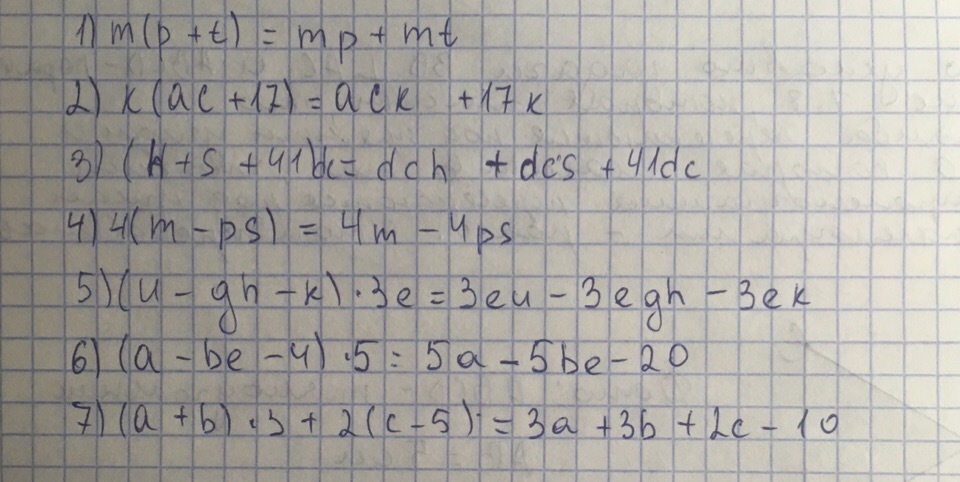 1) m(p + t) = mp + mt
2) k(ac + 17) = ack + 17k
3) (h + s + 41)dc = dch + dcs + 41dc
4) 4(m - ps) = 4m - 4ps
5) (u - gh - k) · 3e = 3eu - 3egh - 3ek
6) (a - be - 4) · 5 = 5a - 5be - 20
7) (a + b) · 3 + 2(c - 5) = 3a + 3b + 2c - 10